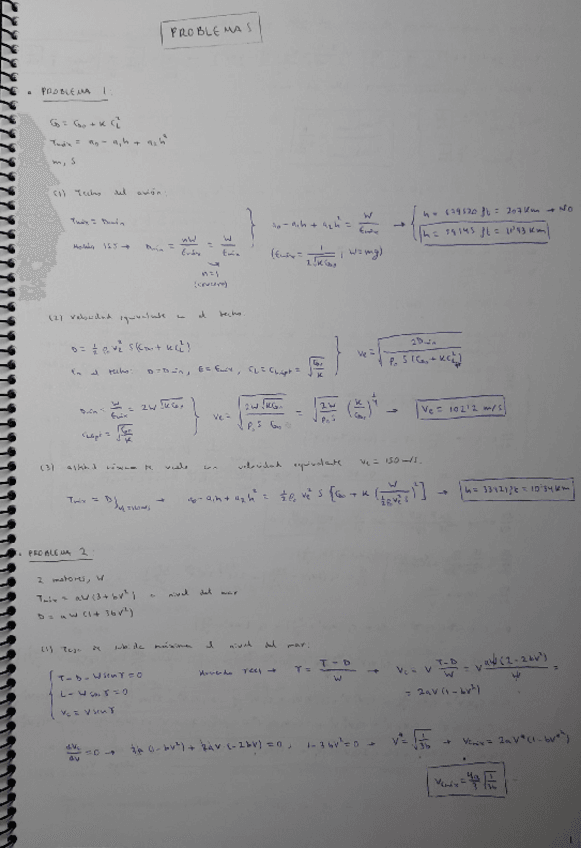 PROBLEMAS
• PROBLEMA 1.
C_D = C_D0 + K C_L²
T_máx = a₀ - a₁h + a₂h²
m, S
(1) Techo del avión
T_máx = D_mín
D_mín = nW/E_máx = W/E_máx
n=1
(crucero)
a₀ - a₁h + a₂h² = W/E_máx
(E_máx = 1/(2√(K C_D0)) ; W=mg)
(2) Velocidad equivalente en el techo
D = ½ ρ₀ V_e² S (C_D0 + K C_L²)
En el techo: D = D_mín, E = E_máx, C_L = C_Lopt = √(C_D0/K)
V_e = √(2D_mín / (ρ₀ S (C_D0 + K C_L²opt)))
D_mín = W/E_máx = 2W√(K C_D0)
C_Lopt = √(C_D0/K)
V_e = √(2W√(K C_D0) / (ρ₀ S C_D0)) = √(2W/(ρ₀ S)) (K/C_D0)^¼ → V_e = 102'2 m/s
(3) altitud máxima de vuelo con velocidad equivalente V_e = 150 m/s.
a₀ - a₁h + a₂h² = ½ ρ₀ V_e² S [C_D0 + K (W / (½ρ₀V_e²S))²]
• PROBLEMA 2.
2 motores, W
T_máx = aW(3+bV²) a nivel del mar
D = aW(1+3bV²)
(1) Tasa de subida máxima al nivel del mar.
T - D - W sin γ = 0
V_c = V sin γ
γ = (T-D)/W → V_c = V (T-D)/W = V aW(2-2bV²)/W =
= 2aV(1-bV²)
dV_c/dV = 0 → 2a(1-bV²) + 2aV(-2bV) = 0, 1-3bV² = 0 → V* = √(1/3b) → V_cmáx = 2aV*(1-bV*²)
V_cmáx = 4a/3 √(1/3b)
1